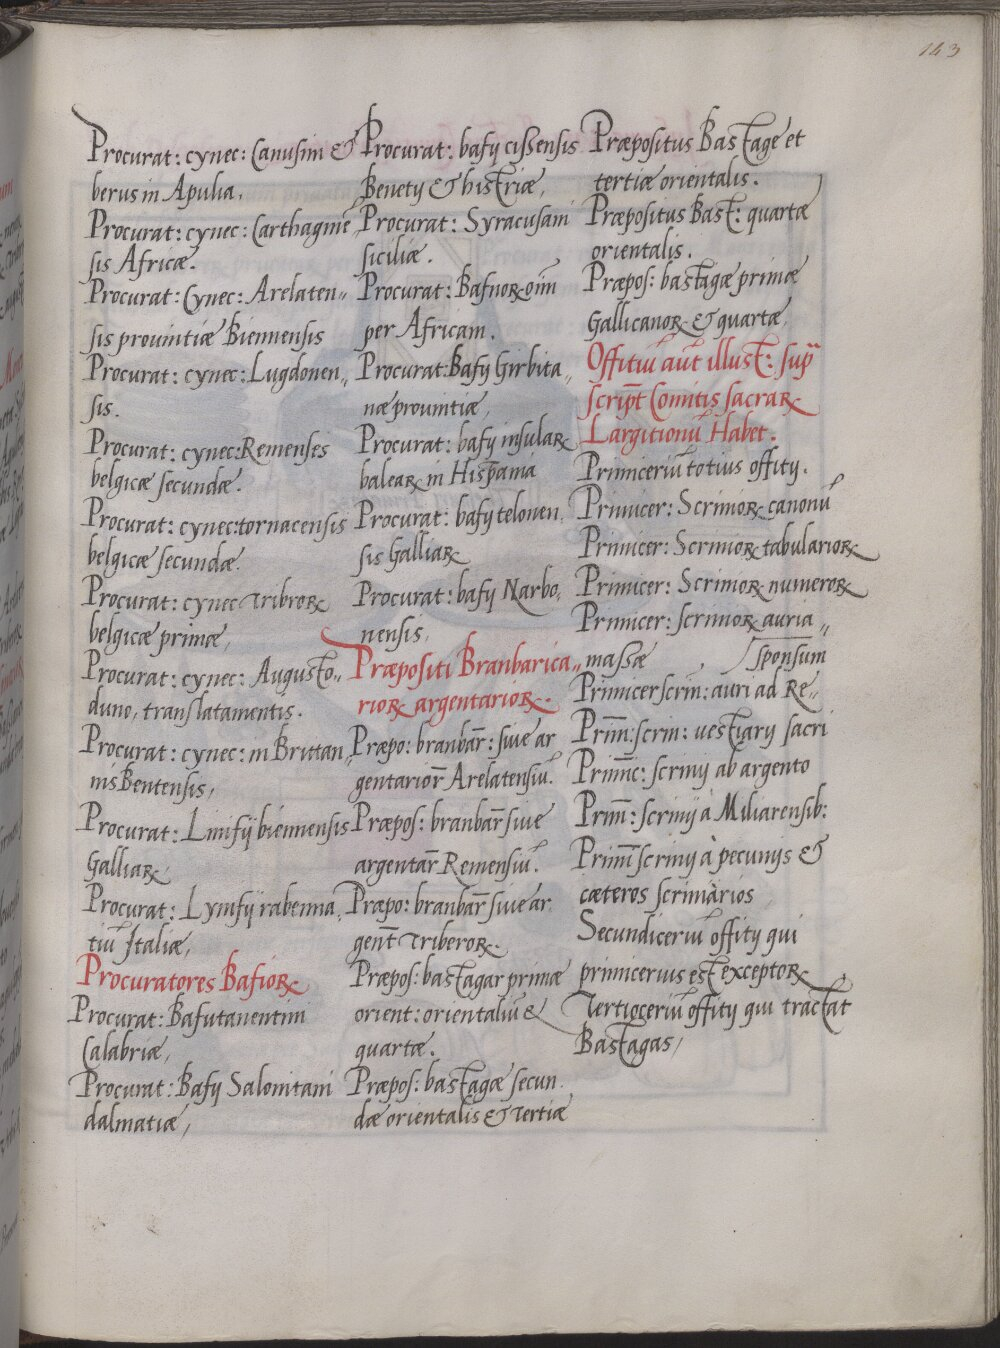 143
Procurat: cynec: Canusini &
berus in Apulia,
Procurat: cynec: Carthagine
sis Africæ.
Procurat: Cynec: Arelaten„
sis prouintiæ Biennensis
Procurat: cynec: Lugdonen„
sis.
Procurat: cynec: Remenses
belgicæ secundæ.
Procurat: cynec: tornacensis
belgicæ secundæ.
Procurat: cynec Triberoꝝ
belgicæ primæ,
Procurat: cynec: Augusto„
duno, translatamentis.
Procurat: cynec: in Brittan,
nis Bentensis,
Procurat: Linifij biennensis
Galliaꝝ,
Procurat: Lynifij rabenna,
tiũ Italiæ,
Procuratores Bafioꝝ
Procurat: Bafutanentini
Calabriæ,
Procurat: Bafij Salonitani
dalmatiæ,
Procurat: bafij cissensis
Benetij & histriæ,
Procurat: Syracusani
siciliæ.
Procurat: Bafnoꝝ oĩm
per Africam.
Procurat: Bafij Girbita„
næ prouintiæ,
Procurat: bafij insulaꝝ
baleaꝝ in Hispania
Procurat: bafij telonen,
sis Galliaꝝ
Procurat: bafij Narbo,
nensis,
Præpositi Branbarica„
rioꝝ argentarioꝝ.
Præpo: branbar̃: siue ar
gentarior̃ Arelatensiũ.
Præpos: branbar̃ siue
argentar̃ Remensiũ.
Præpo: branbar̃ siue ar.
gent̃ Triberoꝝ.
Præpos: bastagar primæ
orient: orientaliũ &
quartæ.
Præpos: bastagæ secun.
dæ orientalis & Tertiæ
Præpositus Bastagę et
tertiæ orientalis.
Præpositus Bast: quartæ
orientalis.
Præpos: bastagæ primæ
Gallicanoꝝ & quartæ,
Offitiũ aũt illust: sup̃
script̃ Comitis sacraꝝ
Largitionũ Habet.
Primiceriũ totius offitij.
Primicer: Scrinioꝝ canonũ
Primicer: Scrinioꝝ tabularioꝝ
Primicer: Scrinioꝝ numeroꝝ
Primicer: scrinioꝝ auria„
massæ , / sponsum
Primicer scrin: auri ad Re„
Prim̃: scrin: uestiarij sacri
Prim̃c: scrinij ab argento
Prim̃: scrinij à Miliarensib:
Prim̃ scrinij à pecunijs &
cæteros scriniàrios
Secundiceriũ offitij qui
primicerius est exceptoꝝ
Tertioceriũ offitij qui tractat
Bastagas,